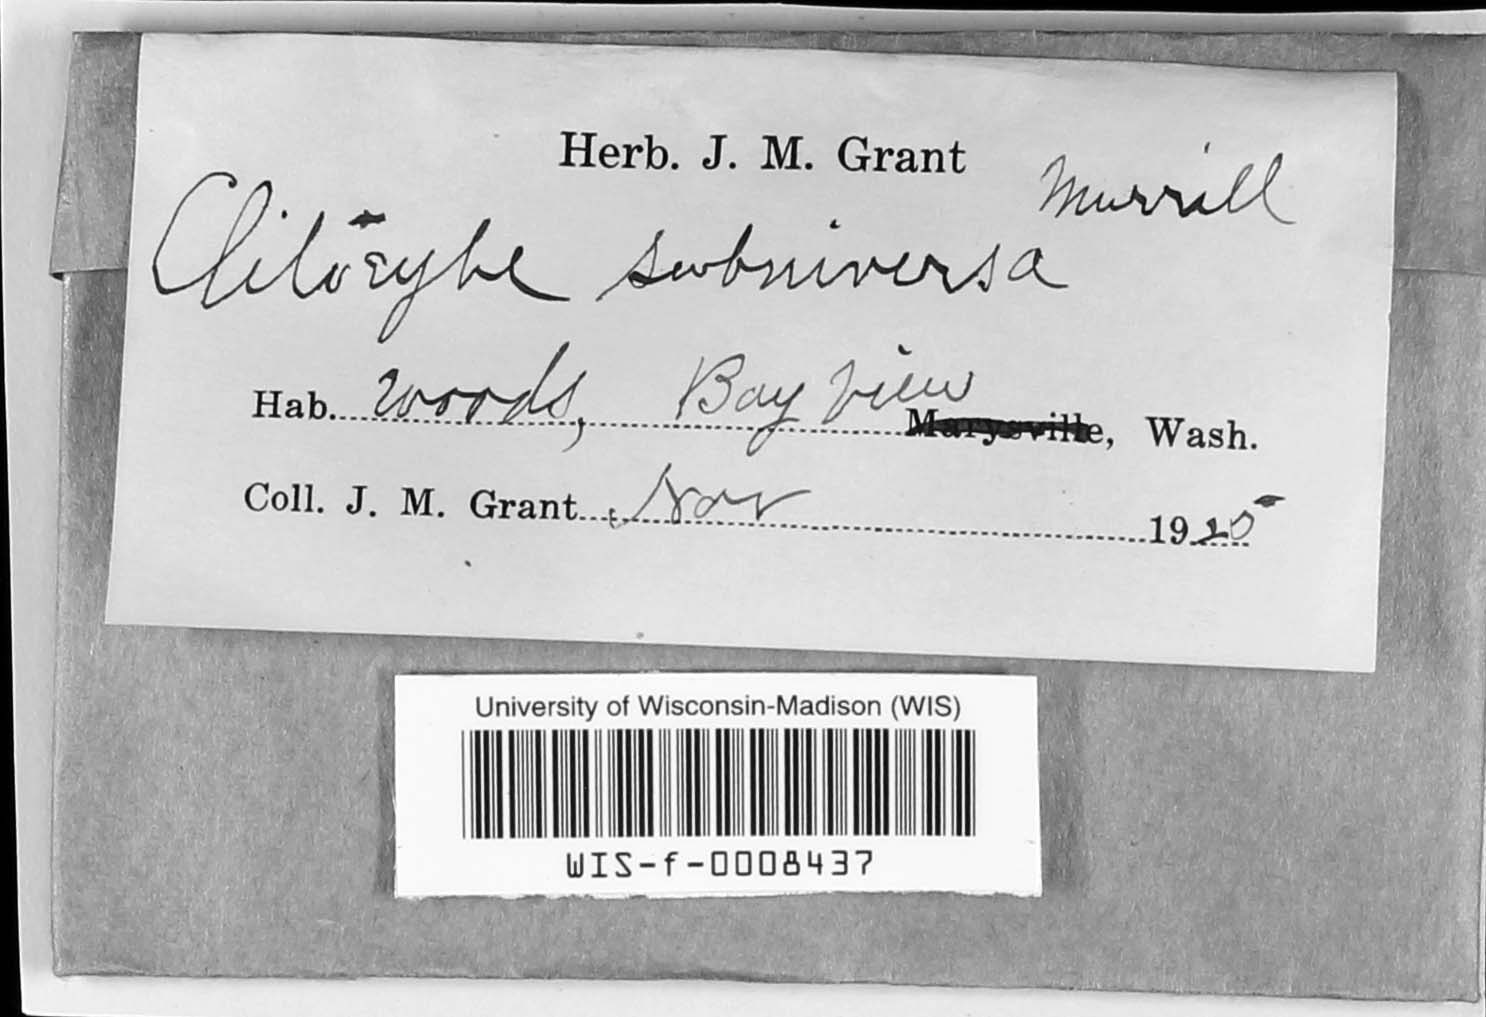 Herb. J. M. Grant
Clitocybe subniversa Murrill
Hab. woods, Bay View Marysville, Wash.
Coll. J. M. Grant, Nov 1925
University of Wisconsin-Madison (WIS)
WIS-f-0008437